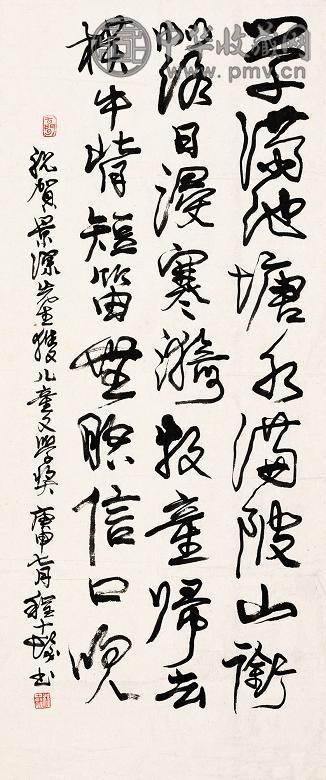 草满池塘水满陂山衔
落日浸寒漪牧童歸去
横牛背短笛無腔信口吹
祝賀景深先生獲儿童文學奖 庚申七月 程十髮书
中华收藏网
www.pmv.cn